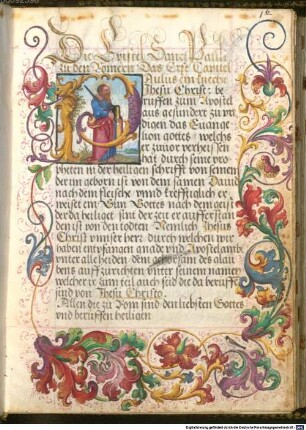 Die Epistel Sanc Pauli
zu den Römern Das Erst Capitel
Paulus ein knecht
Jhesu Christ: be
ruffen zum Apostel
aus gesundert zu pre
digen das Euange
lion gottes welchs
er zuuor verheissen
hat durch seine pro
pheten in der heiligen schrifft von seinen
der im geborn ist von dem samen Dauid
nach dem fleische vnnd krefftiglich er
weist ein Sun Gottes nach dem geist
der da heiliget sint der zeit er aufferstan
den ist von den todten Nemlich Jhesus
Christ vnnser herz durch welchen wir
haben entpfangen gnade vnd Apostelampt
vnter alle heiden dem gehorsam des glau
bens auff zurichten vnter seinem namen
welcher ir zum teil auch seid die da beruffen
sind von Jhesu Christo
Allen die zu Rom sind den liebsten Gottes
vnd beruffen heiligen